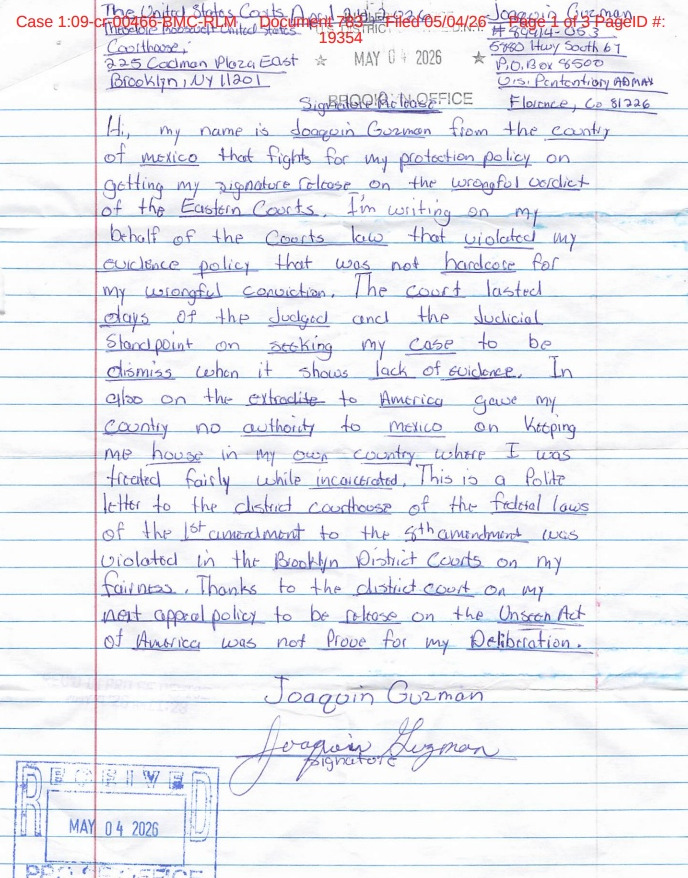 Case 1:09-cr-00466-BMC-RLM Document 783 Filed 05/04/26 Page 1 of 3 PageID #: 19354
The United States Courts
Theodore Roosevelt United States
Courthouse,
225 Cadman Plaza East
Brooklyn, NY 11201
April 2026
☆ MAY 04 2026 ★
BROOKLYN OFFICE
Joaquin Guzman
# 89914-053
5880 Hwy South 67
P.O. Box 8500
U.S. Pententiary ADMAX
Florence, Co 81226
Signature Release
Hi, my name is Joaquin Guzman from the country
of mexico that fights for my protection policy on
getting my signature release on the wrongful verdict
of the Eastern Courts. I'm writing on my
behalf of the Courts law that violated my
evidence policy that was not hardcore for
my wrongful conviction. The court lasted
days of the Judged and the Judicial
Standpoint on seeking my case to be
dismiss when it shows lack of evidence. In
also on the extradite to America gave my
country no authority to mexico on Keeping
me house in my own country where I was
treated fairly while incarcerated. This is a Polite
letter to the district courthouse of the federal laws
of the 1st amendment to the 8th amendment was
violated in the Brooklyn District Courts on my
fairness. Thanks to the district court on my
next appeal policy to be release on the Unseen Act
of America was not Prove for my Deliberation.
Joaquin Guzman
Joaquin Guzman
signature
RECEIVED
MAY 04 2026
PRO SE OFFICE